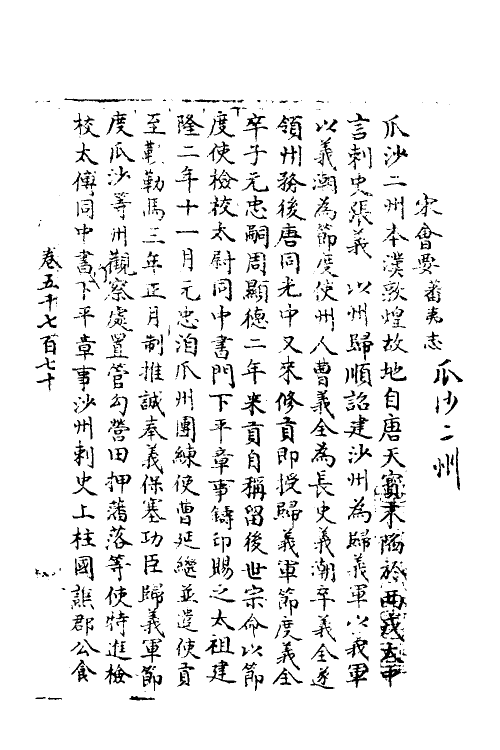 瓜沙二州
宋會要 蕃夷志
瓜沙二州本漢敦煌故地自唐天寳末陥於西戎大中
言刺史張義 以州歸順詔建沙州為歸義軍以義軍
以義潮為節度使州人曹義全為長史義潮卒義全遂
領州務後唐同光中又來修貢即授歸義軍節度義全
卒子元忠嗣周顯德二年來貢自稱留後世宗命以節
度使檢校太尉同中書門下平章事鑄印賜之太祖建
隆二年十一月元忠洎瓜州團練使曹延繼並遣使貢
至勒勒馬三年正月制推誠奉義保塞功臣歸義軍節
度瓜沙等州觀察處置管勾營田押蕃落等使特進檢
校太傅同中書下平章事沙州刺史上柱國譙郡公食
卷五千七百七十